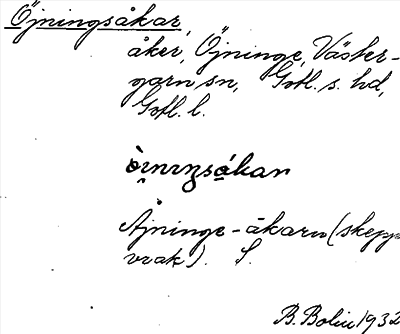 Öjningsåkar,
åker, Öjninge, Väster-
garn sn, Gotl. s. hd,
Gotl. l.
Åjninge-åkarn (skepps
vrak). S.
B. Bolin 1932